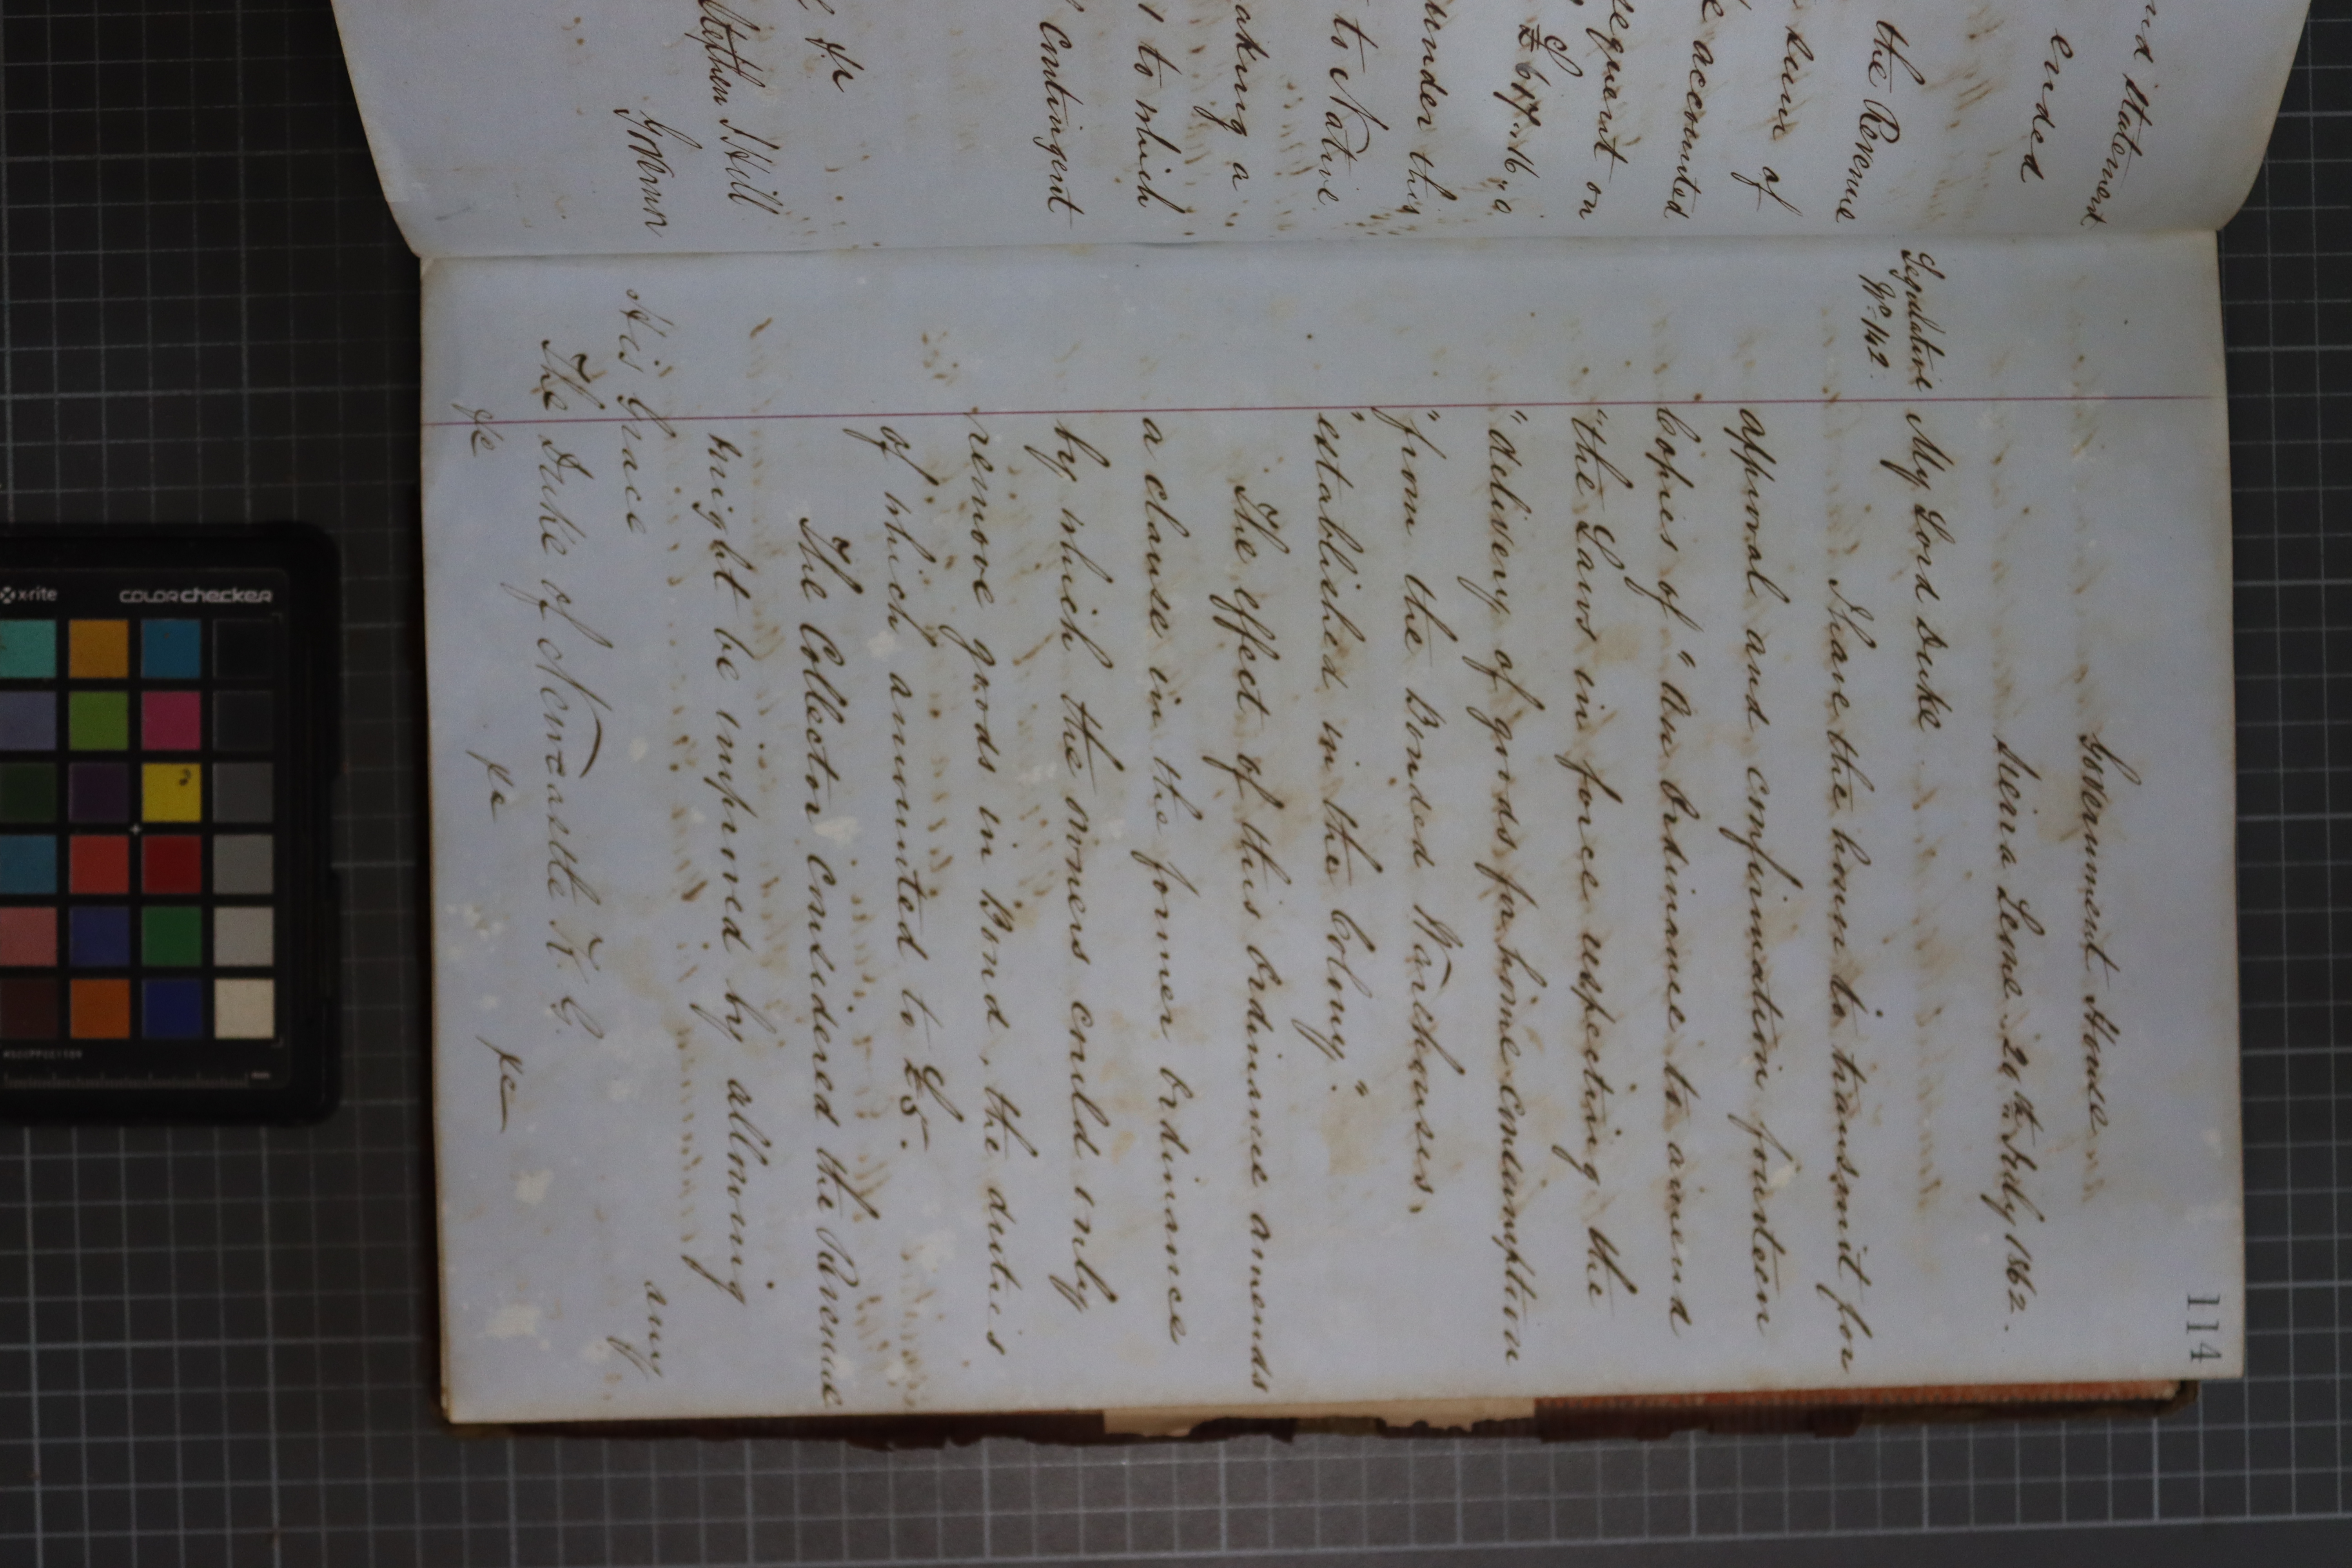 nd Statement
ended
the Revenue
sum of
e accounted
sequent on
£617.16.0
under this
to Native
aking a
to which
contingent
&c
Stephen J Hill
Governor
114
Government House
Seirra Leone 20th July 1862.
Legislative
No. 142.
My Lord Duke
I have the honor to transmit for
approval and confirmation fourteen
Copies of "An Ordinance to amend
"the Laws in force respecting the
"delivery of goods for home consumption
"from the Bonded Warehouses,
"established in the Colony."
The effect of this Ordinance amends
a clause in the former Ordinance
by which the owners could only
remove goods in Bond, the duties
of which amounted to £5.
The Collector considered the Revenue
might be improved by allowing
any
His Grace
The Duke of Newcastle K.G.
&c &c &c
x-rite
colorchecker